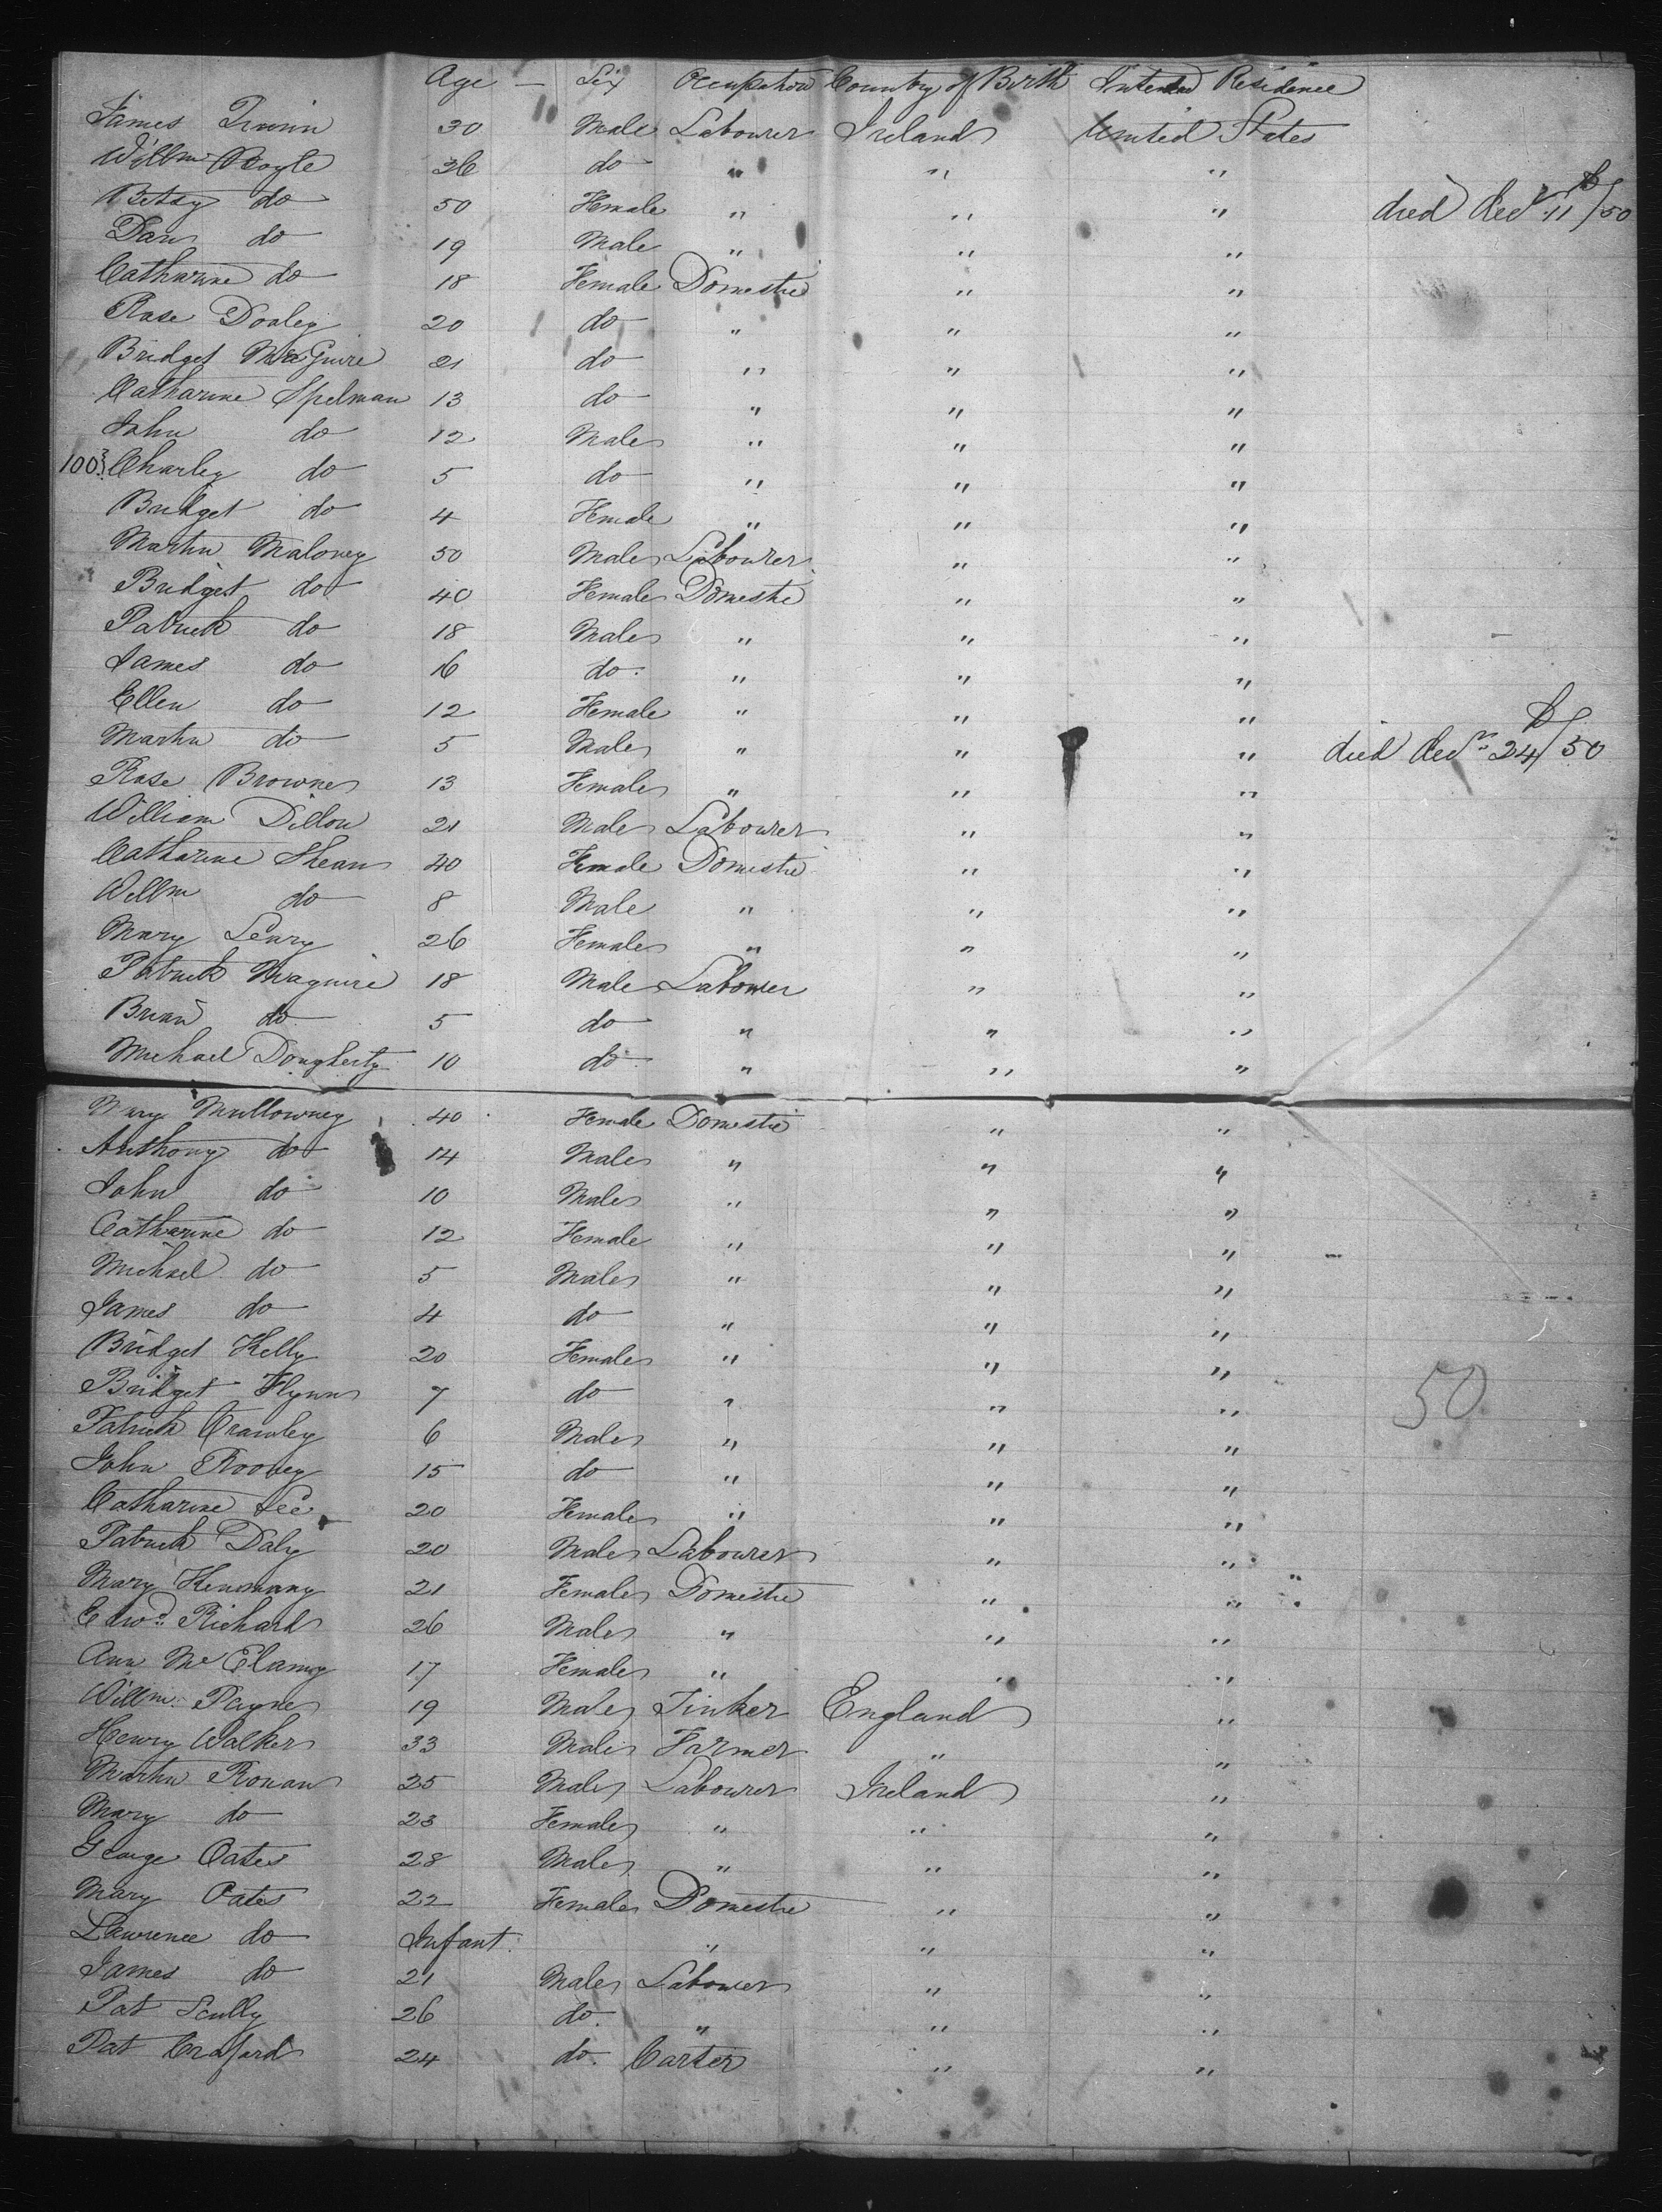 Age — Sex Occupation Country of Birth Intended Residence
James Quinn 30 Male Labourer Ireland United States
Willm Boyle 36 do " " "
Betsy do 50 Female " " " died Decr 11/50
Dan do 19 Male " " "
Catharine do 18 Female Domestic " "
Rose Dooley 20 do " " "
Bridget McGuire 21 do " " "
Catharine Spelman 13 do " " "
John do 12 Male " " "
100 Charley do 5 do " " "
Bridget do 4 Female " " "
Martin Maloney 50 Male Labourer " "
Bridget do 40 Female Domestic " "
Patrick do 18 Male " " "
James do 16 do " " "
Ellen do 12 Female " " "
Martin do 5 Male " " " died Decr 24/50
Rose Browne 13 Female " " "
William Dillon 21 Male Labourer " "
Catharine Shean 40 Female Domestic " "
Willm do 8 Male " " "
Mary Leary 26 Female " " "
Patrick Maguire 18 Male Labourer " "
Brian do 5 do " " "
Michael Dougherty 10 do " " "
Mary Mullowney 40 Female Domestic " "
Anthony do 14 Male " " "
John do 10 Male " " "
Catharine do 12 Female " " "
Michael do 5 Male " " "
James do 4 do " " "
Bridget Kelly 20 Female " " "
Bridget Flynn 7 do " " "
50
Patrick Crawley 6 Male " " "
John Rooney 15 do " " "
Catharine Lee 20 Female " " "
Patrick Daly 20 Male Labourer " "
Mary 21 Female Domestic " "
Edwd. Richard 26 Male " " "
Ann Mc 17 Female " " "
Willm. Payne 19 Male Tinker England "
Henry Walker 33 Male Farmer " "
Martin Ronan 25 Male Labourer Ireland "
Mary do 23 Female " " "
George Oates 28 Male " " "
Mary Oates 22 Female Domestic " "
Lawrence do Infant. " " "
James do 21 Male Labourer " "
Pat Scully 26 do. " " "
Pat Craford 24 do. Carter " "